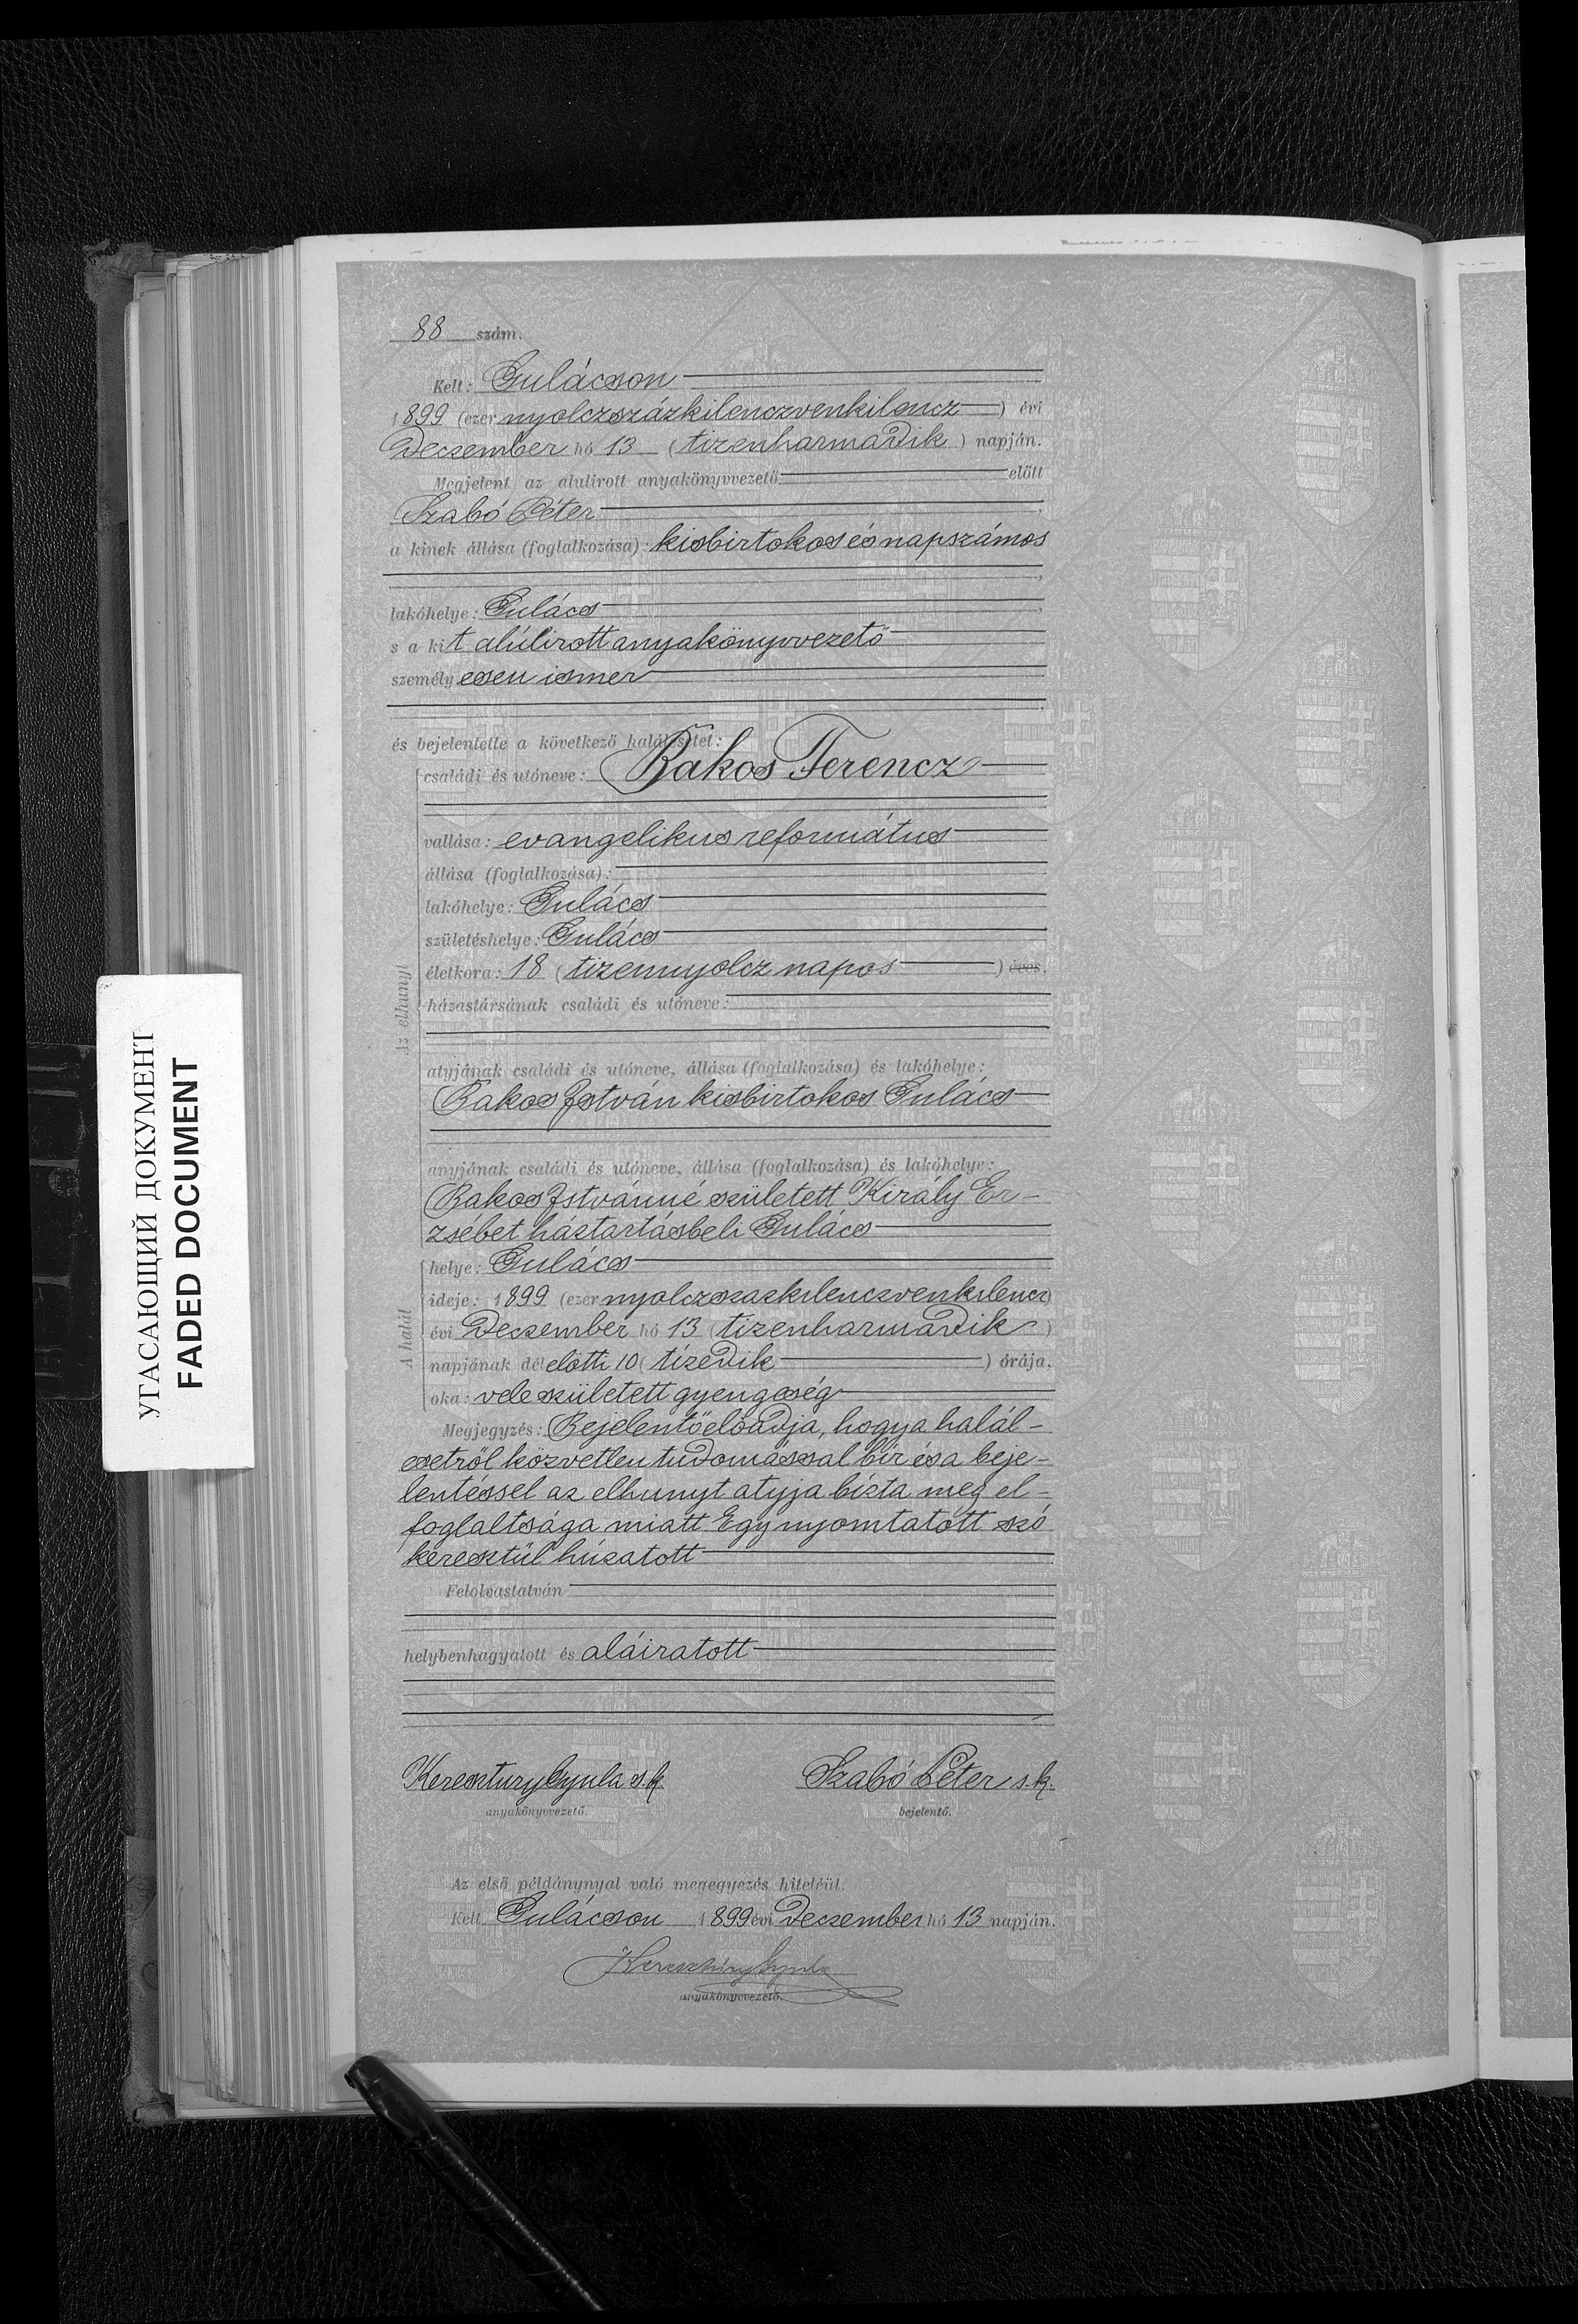 88 szám.
Kelt: Gulácson
1899 (ezer nyolczszázkilenczvenkilencz) évi
Deczember hó 13 (tizenharmadik) napján.
Megjelent az alulirott anyakönyvvezető előtt
Szabó Péter,
a kinek állása (foglalkozása): kisbirtokos és napszámos
lakóhelye: Gulács,
s a kit alúlirott anyakönyvvezető
személyesen ismer
és bejelentette a következő halálesetet:
családi és utóneve: Bakos Ferencz
vallása: evangelikus református
állása (foglalkozása):
lakóhelye: Gulács
születéshelye: Gulács
életkora: 18 (tizennyolcz napos) éves.
házastársának családi és utóneve:
Az elhunyt
atyjának családi és utóneve, állása (foglalkozása) és lakóhelye:
Bakos István kisbirtokos Gulács
anyjának családi és utóneve, állása (foglalkozása) és lakóhelye:
Bakos Istvánné született Király Er-
zsébet háztartásbeli Gulács
A halál
helye: Gulács
ideje: 1899 (ezer nyolczszazkilenczvenkilencz)
évi Deczember hó 13 (tizenharmadik)
napjának délelőtti 10 (tizedik) órája.
oka: vele született gyengeség
Megjegyzés: Bejelentő előadja, hogy a halál-
esetről közvetlen tudomással bír és a beje-
lentéssel az elhunyt atyja bízta meg el-
foglaltsága miatt. Egy nyomtatott szó
keresztül húzatott
Felolvastatván
helybenhagyatott és aláiratott
Keresztury Gyula s.k. Szabó Péter s.k.
anyakönyvvezető. bejelentő.
Az első példánynyal való megegyezés hiteléül.
Kelt Gulácson 1899 évi Deczember hó 13 napján.
Keresztúry Gyula
anyakönyvvezető.
УГАСАЮЩИЙ ДОКУМЕНТ
FADED DOCUMENT